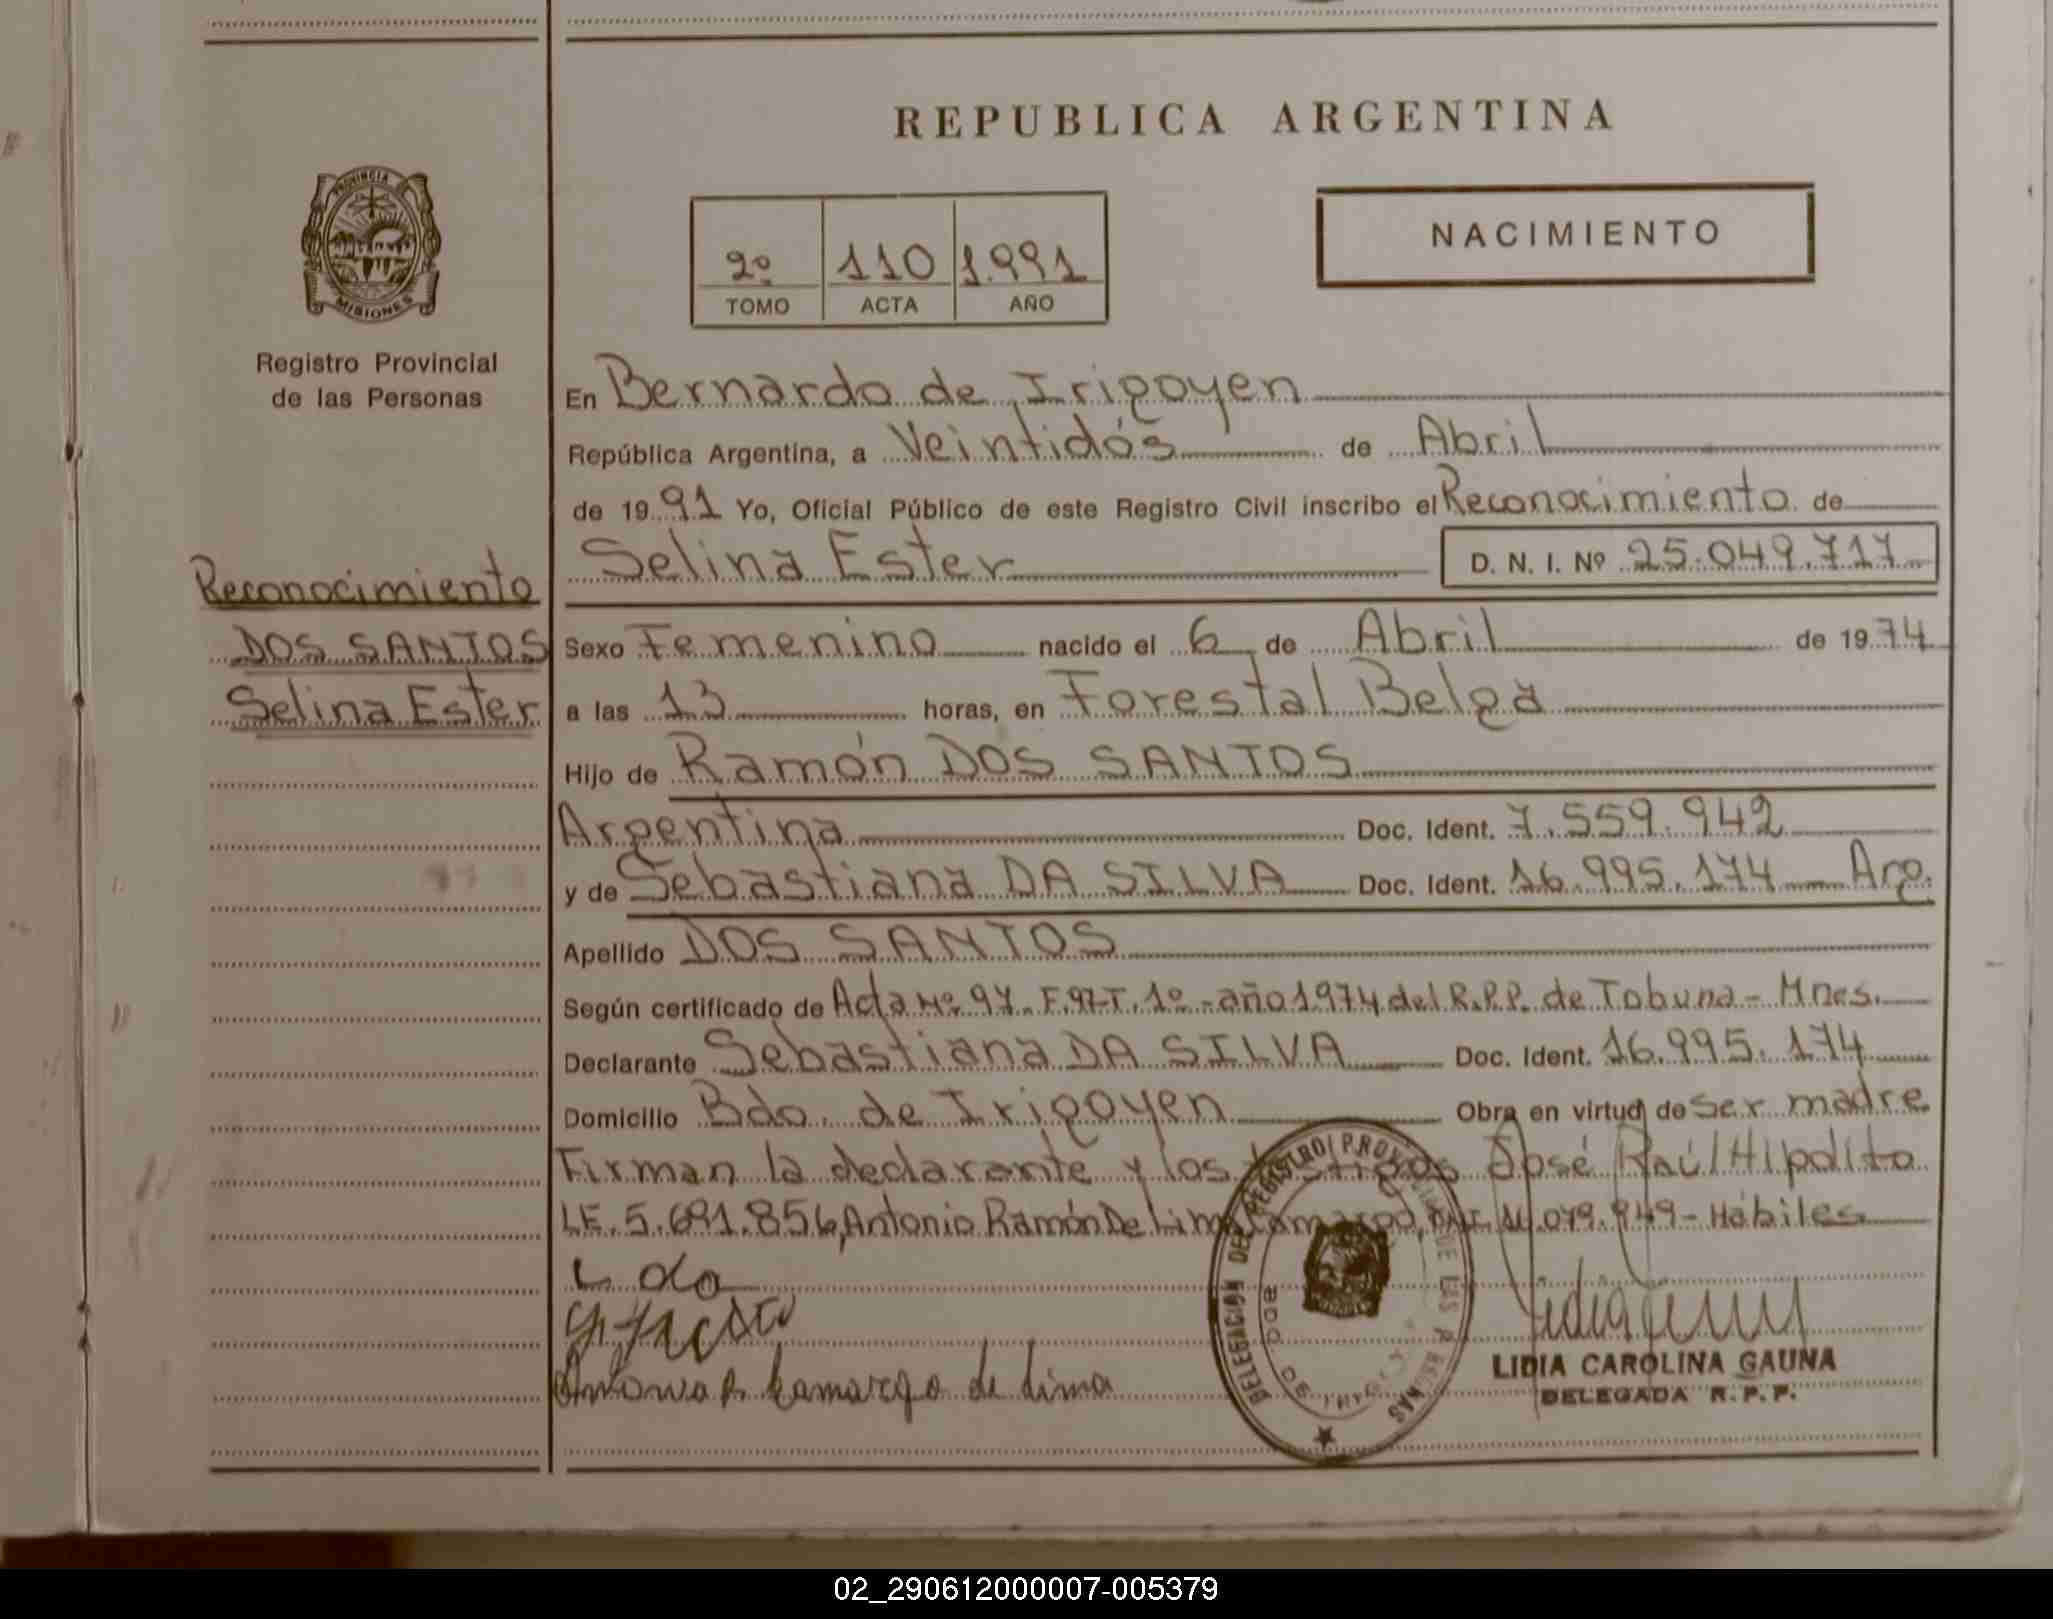 REPUBLICA ARGENTINA
PROVINCIA DE
MISIONES
Registro Provincial
de las Personas
2º 110 1.991
TOMO ACTA AÑO
NACIMIENTO
En Bernardo de Irigoyen
República Argentina, a Veintidós de Abril
de 19 91 Yo, Oficial Público de este Registro Civil inscribo el Reconocimiento de
Selina Ester D. N. I. Nº 25.049.717
Reconocimiento
DOS SANTOS
Selina Ester
Sexo Femenino nacido el 6 de Abril de 19 74
a las 13 horas, en Forestal Belga
Hijo de Ramón DOS SANTOS
Argentina Doc. Ident. 7.559.942
y de Sebastiana DA SILVA Doc. Ident. 16.995.174 Arg.
Apellido DOS SANTOS
Según certificado de Acta Nº 97- F.97-T.1º-año1974 del R.P.P. de Tobuna- Mnes.
Declarante Sebastiana DA SILVA Doc. Ident. 16.995.174
Domicilio Bdo. de Irigoyen Obra en virtud de ser madre
Firman la declarante y los testigos José Raúl Hipolito
LE.5.691.856, Antonio Ramón De Lima Camargo, - Hábiles
Antonio R. Camargo de Lima
DELEGACION DEL REGISTRO PROVINCIAL DE LAS PERSONAS
BDO DE IRIGOYEN
LIDIA CAROLINA GAUNA
DELEGADA R.P.P.
02_290612000007-005379